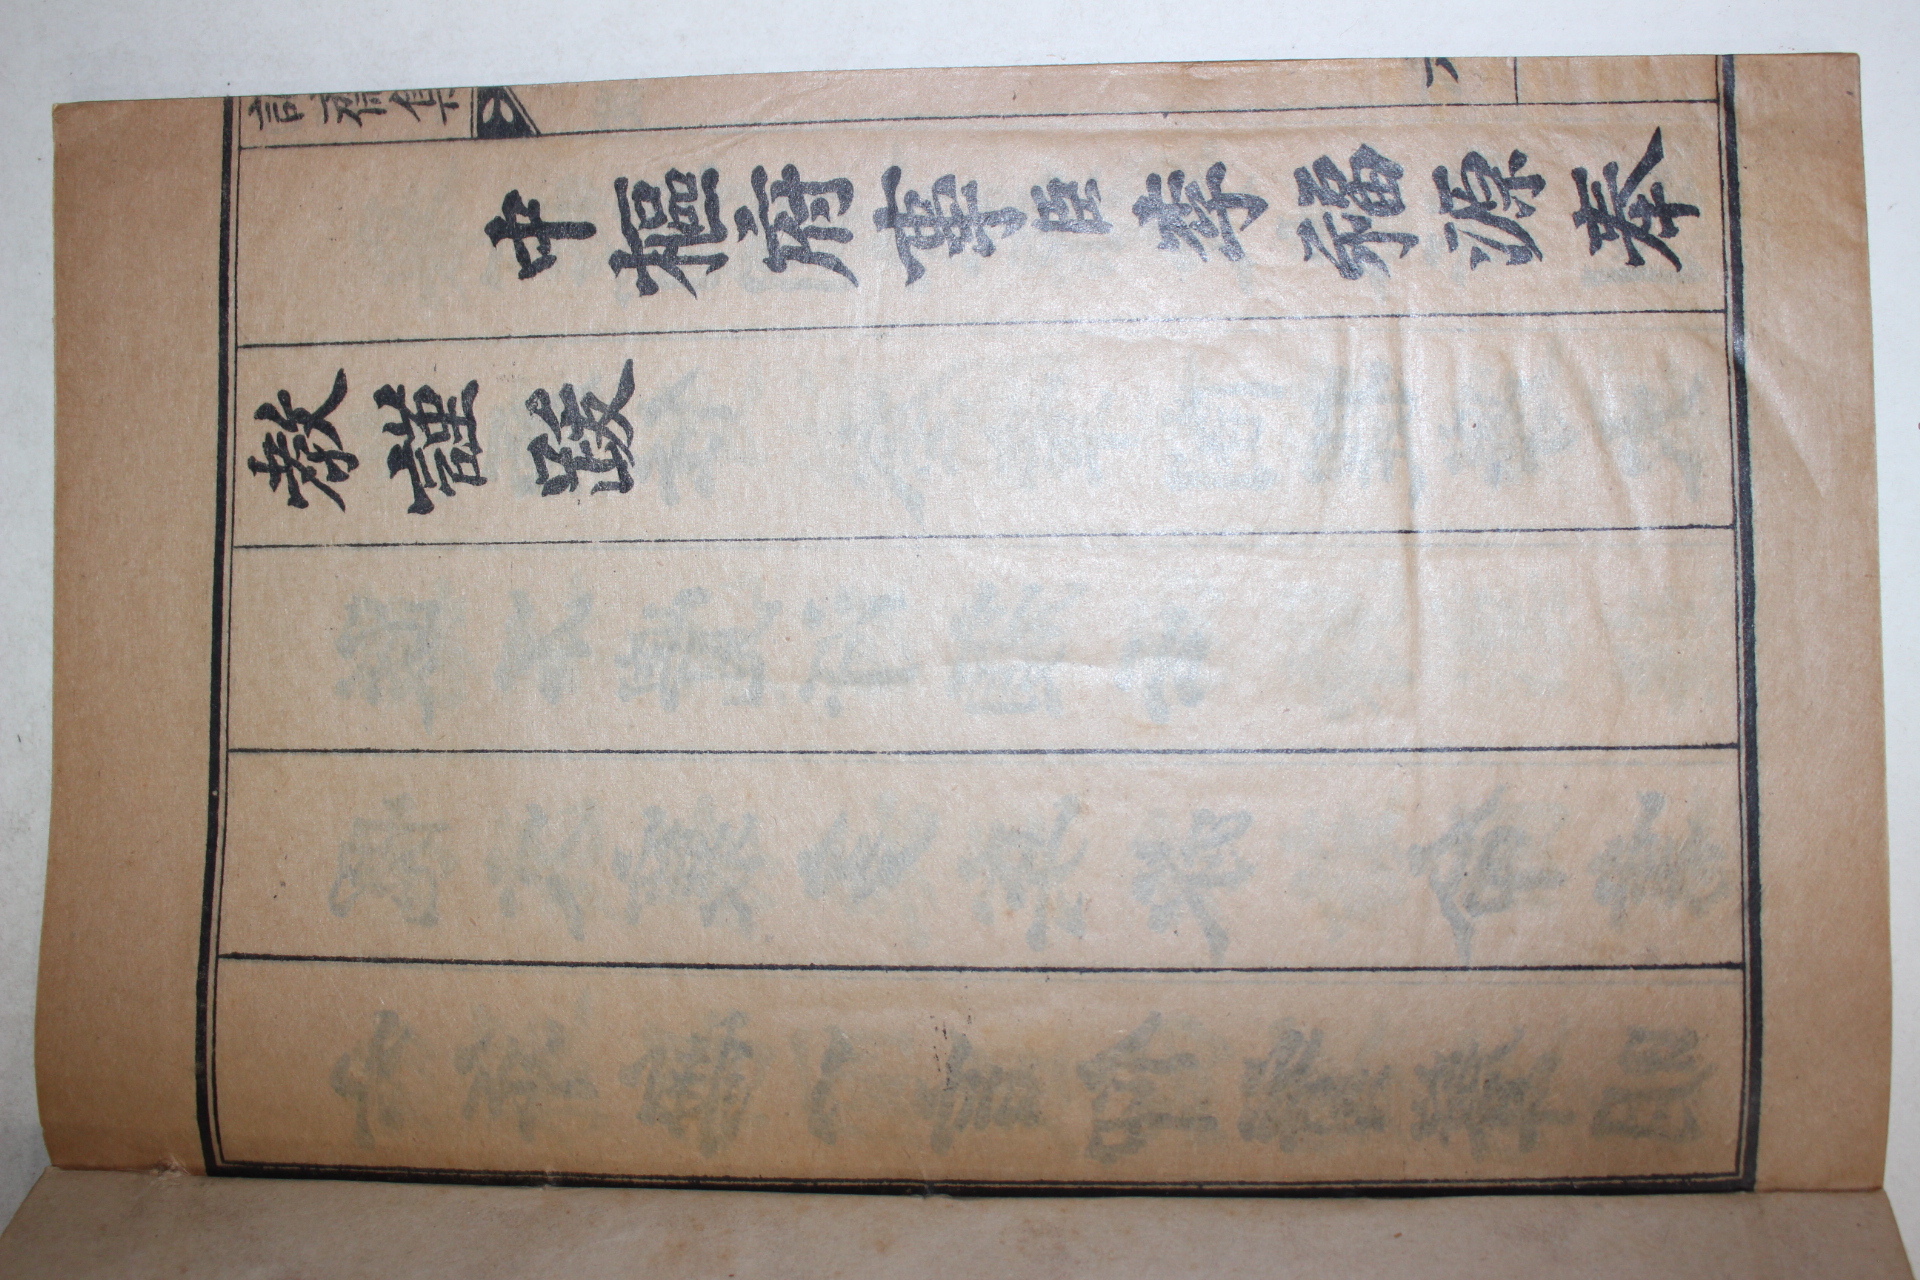 中樞府事臣李福源奉
教謹跋